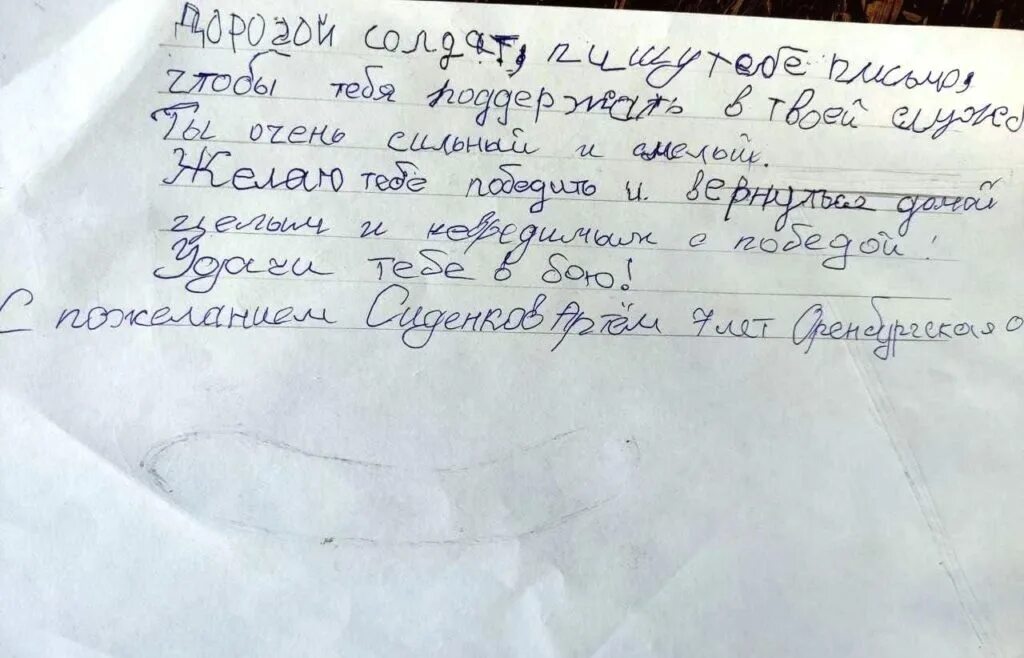 Дорогой солдат, пишу тебе письмо,
чтобы тебя поддержать в твоей служб
Ты очень сильный и смелый.
Желаю тебе победить и вернуться домой
целым и невредимым с победой!
Удачи тебе в бою!
С пожеланием Сиденков Артём 7 лет Оренбургская о